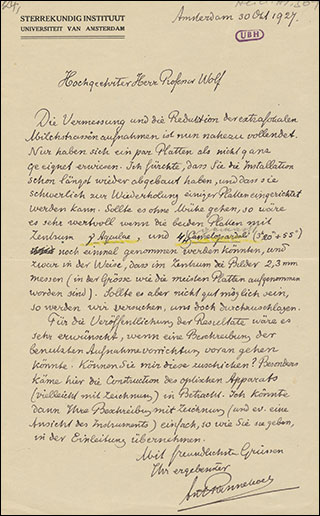 STERREKUNDIG INSTITUUT
UNIVERSITEIT VAN AMSTERDAM
Amsterdam 30 Okt 1927.
UBH
Hochgeehrter Herr Professor Wolf
Die Vermessung und die Reduktion der extrafokalen
Milchstrassenaufnahmen ist nun nahezu vollendet.
Nur haben sich ein par Platten als nicht ganz
geeignet erwiesen. Ich fürchte, dass Sie die Installation
schon längst wieder abgebaut haben, und dass sie
schwerlich zur Wiederholung einiger Platten eingerichtet
werden kann. Sollte es ohne Mühe gehen, so wäre
es sehr wertvoll wenn die beiden Platten mit
Zentrum γ Aquilae, und Camelopardali (3h20 + 55°)
noch einmal genommen werden könnten, und
zwar in der Weise, dass im Zentrum die Bilder 2,3 mm
messen (in der Grösse wie die meisten Platten aufgenommen
worden sind). Sollte es aber nicht gut möglich sein,
so werden wir versuchen, uns doch durchzuschlagen.
Für die Veröffentlichung der Resultate wäre es
sehr erwünscht, wenn eine Beschreibung der
benutzten Aufnahmevorrichtung voran gehen
könnte. Können Sie mir diese zuschicken? Besonders
käme hier die Contruction des optischen Apparats
(vielleicht mit Zeichnung) in Betracht. Ich könnte
dann Ihre Beschreibung mit Zeichnung (und ev. eine
Ansicht des Instruments) einfach, so wie Sie sie geben,
in der Einleitung übernehmen.
Mit freundlichsten Grüssen
Ihr ergebenster
Ant Pannekoek